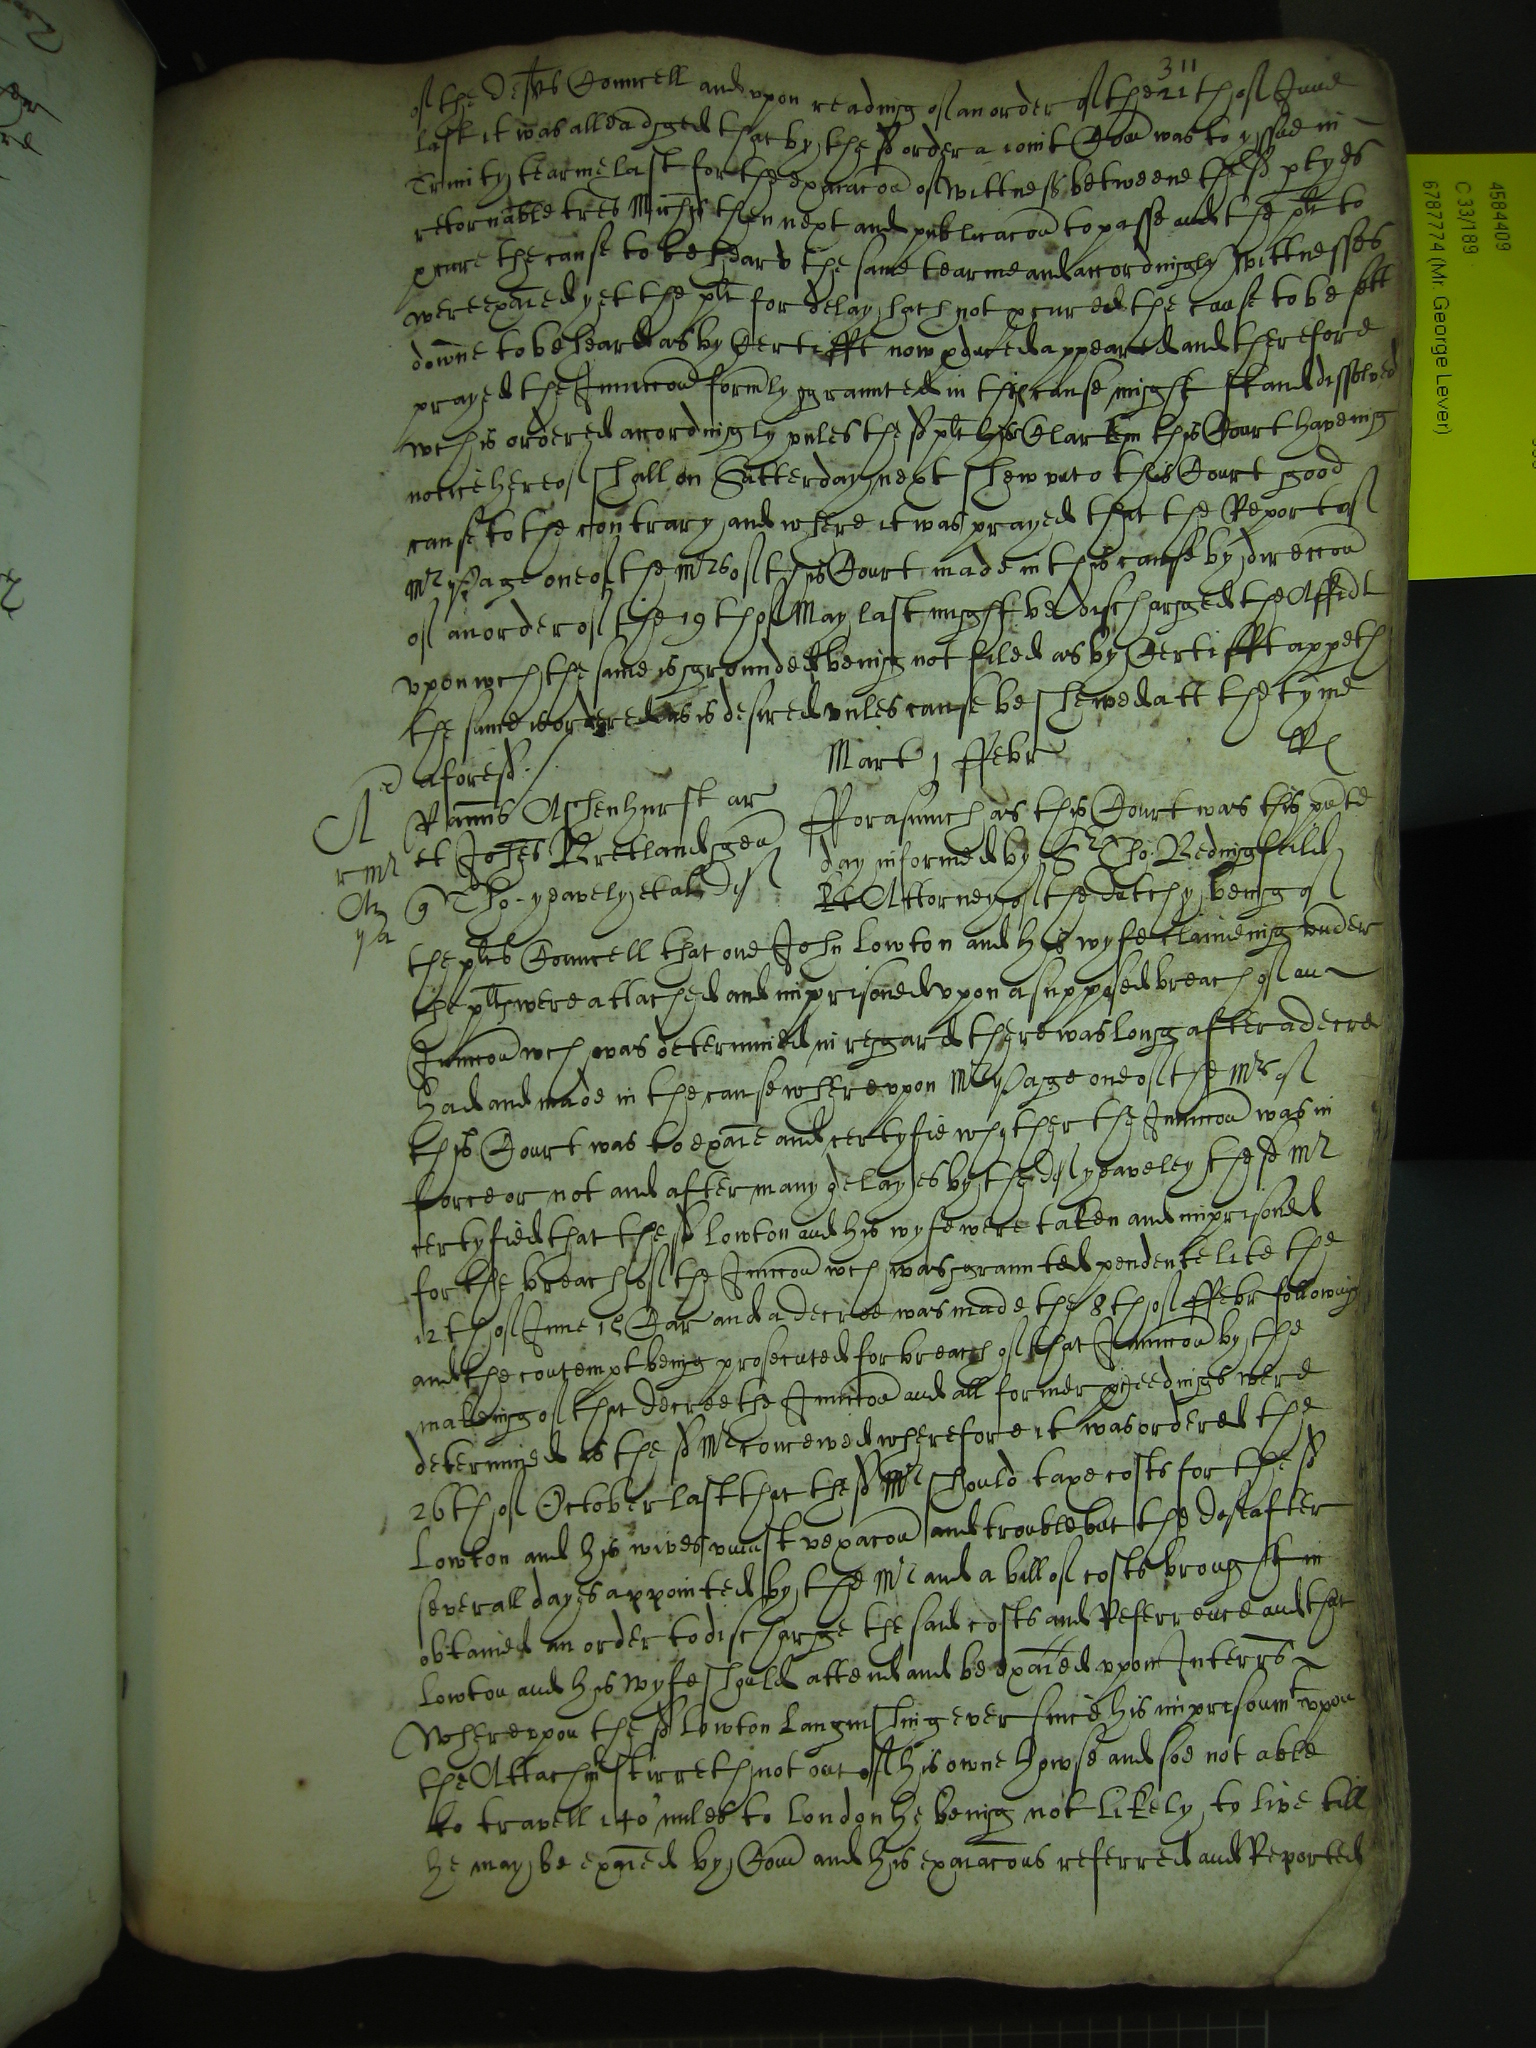 311
of the defts Councell and upon reading of an order of the 21th of June
last it was alleadged that by the sd order a joint Coon was to yssue in
Trinity tearme last for the exaiacon of wittness betweene the sd ptyes
retornable tres Michis then next and publicacon to passe and the plt to
pcure the cause to be heard the same tearme and accordingly Wittnesses
were exaied yet the plt for delay hath not pcured the cause to be sett
downe to be heard as by Certifft now pduced appeared and therefore
prayed the Iniuccon formly graunted in this cause might stand dissolved
wch is ordered accordingly unles the sd plt his Clark in this Court haveing
notice hereof shall on Satterday next shew unto this Court good
cause to the contrary, and where it was prayed that the Report of
Mr Page one of the Mrs of this Court made in this cause by direccon
of an order of the 19th of May last might be discharged the Affidt
upon wch the same is grounded being not filed as by Certifft appeth
the same is ordered as is desired unles cause be shewed att the tyme
aforesd./
Mart j ffebr
A
r mr
ya
Rannus Ashenhurst ar
et Johes Bretland gen
Tho. yeavely et al def
Forasmuch as this Court was this pnte
day informed by Sr Tho: Bedingfeild
Kt Attorney of the dutchy being of
the plts Councell that one John Lowton and his wyfe claimeing under
the plts were attached and imprisoned upon a supposed breach of an
Iniuccon wch was determined in regard there was long after a decree
had and made in the cause whereupon Mr Page one of the Mrs of
this Court was to exaie and certyfie whether the Iniuccon was in
force or not and after many delayes by the def yeaveley the sd Mr
certyfied that the sd Lowton and his wyfe were taken and imprisoned
for the breach of the Iniuccon wch was graunted pendente lite the
12th of June 15 Car and a decree was made the 8th of ffebr following
and the contempt being prosecuted for breach of that Iniuccon by the
makeing of that decree the Iniuccon and all former pceedings were
determined as the sd Mr conceived wherefore it was ordered the
26th of October last that the sd Mr should taxe costs for the sd
Lowton and his wives uniust vexacon and trouble but the def after
severall dayes appointed by the Mr and a bill of costs brought in
obtained an order to discharge the said costs and Referrence and that
Lowton and his Wyfe should attend and be exaied upon Interrs
Whereupon the sd Lowton Languishing ever since his imprisonmt upon
the Attachmt stirreth not out of his owne howse and soe not able
to travell 140 miles to London he being not likely to live till
he may be exaied by Coon and his exaiacons referred and Reported
4584409
C 33/189
6787774 (Mr. George Lever)